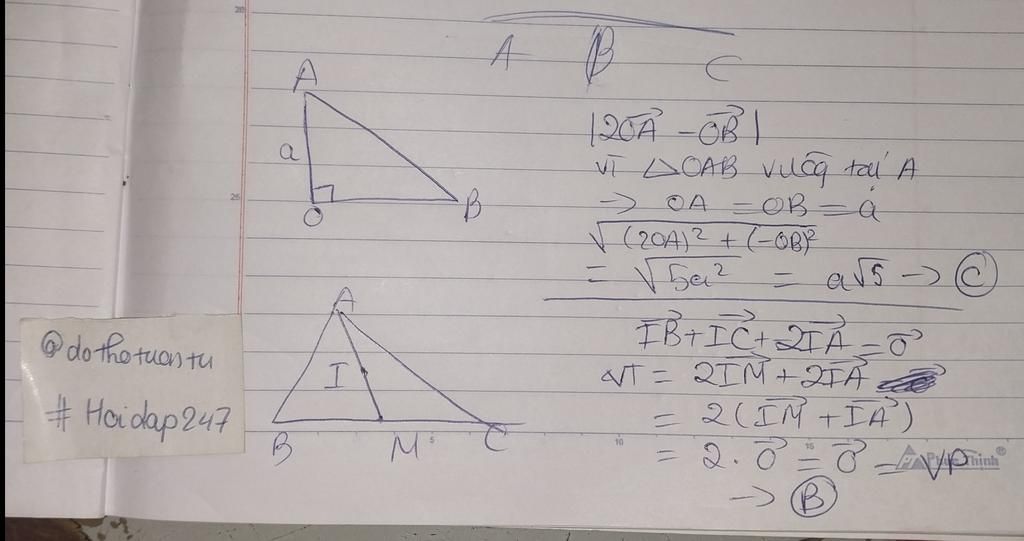 A B C
A
a
O
B
|2OA→ - OB→|
Vì △OAB vuông tại A
→ OA = OB = a
√(2OA)² + (-OB)²
= √5a² = a√5 → C
A
I
B M C
IB→ + IC→ + 2IA→ = 0→
VT = 2IM→ + 2IA→
= 2(IM→ + IA→)
= 2 . 0→ = 0→ = VP
→ B
@dothotuantu
# Hoidap247
25
5
10
15